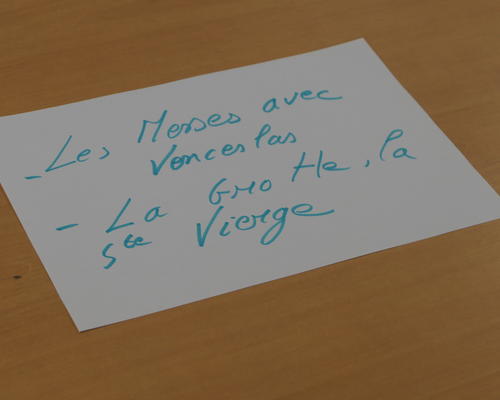 - Les Messes avec
Venceslas
- La Grotte, la
Ste Vierge